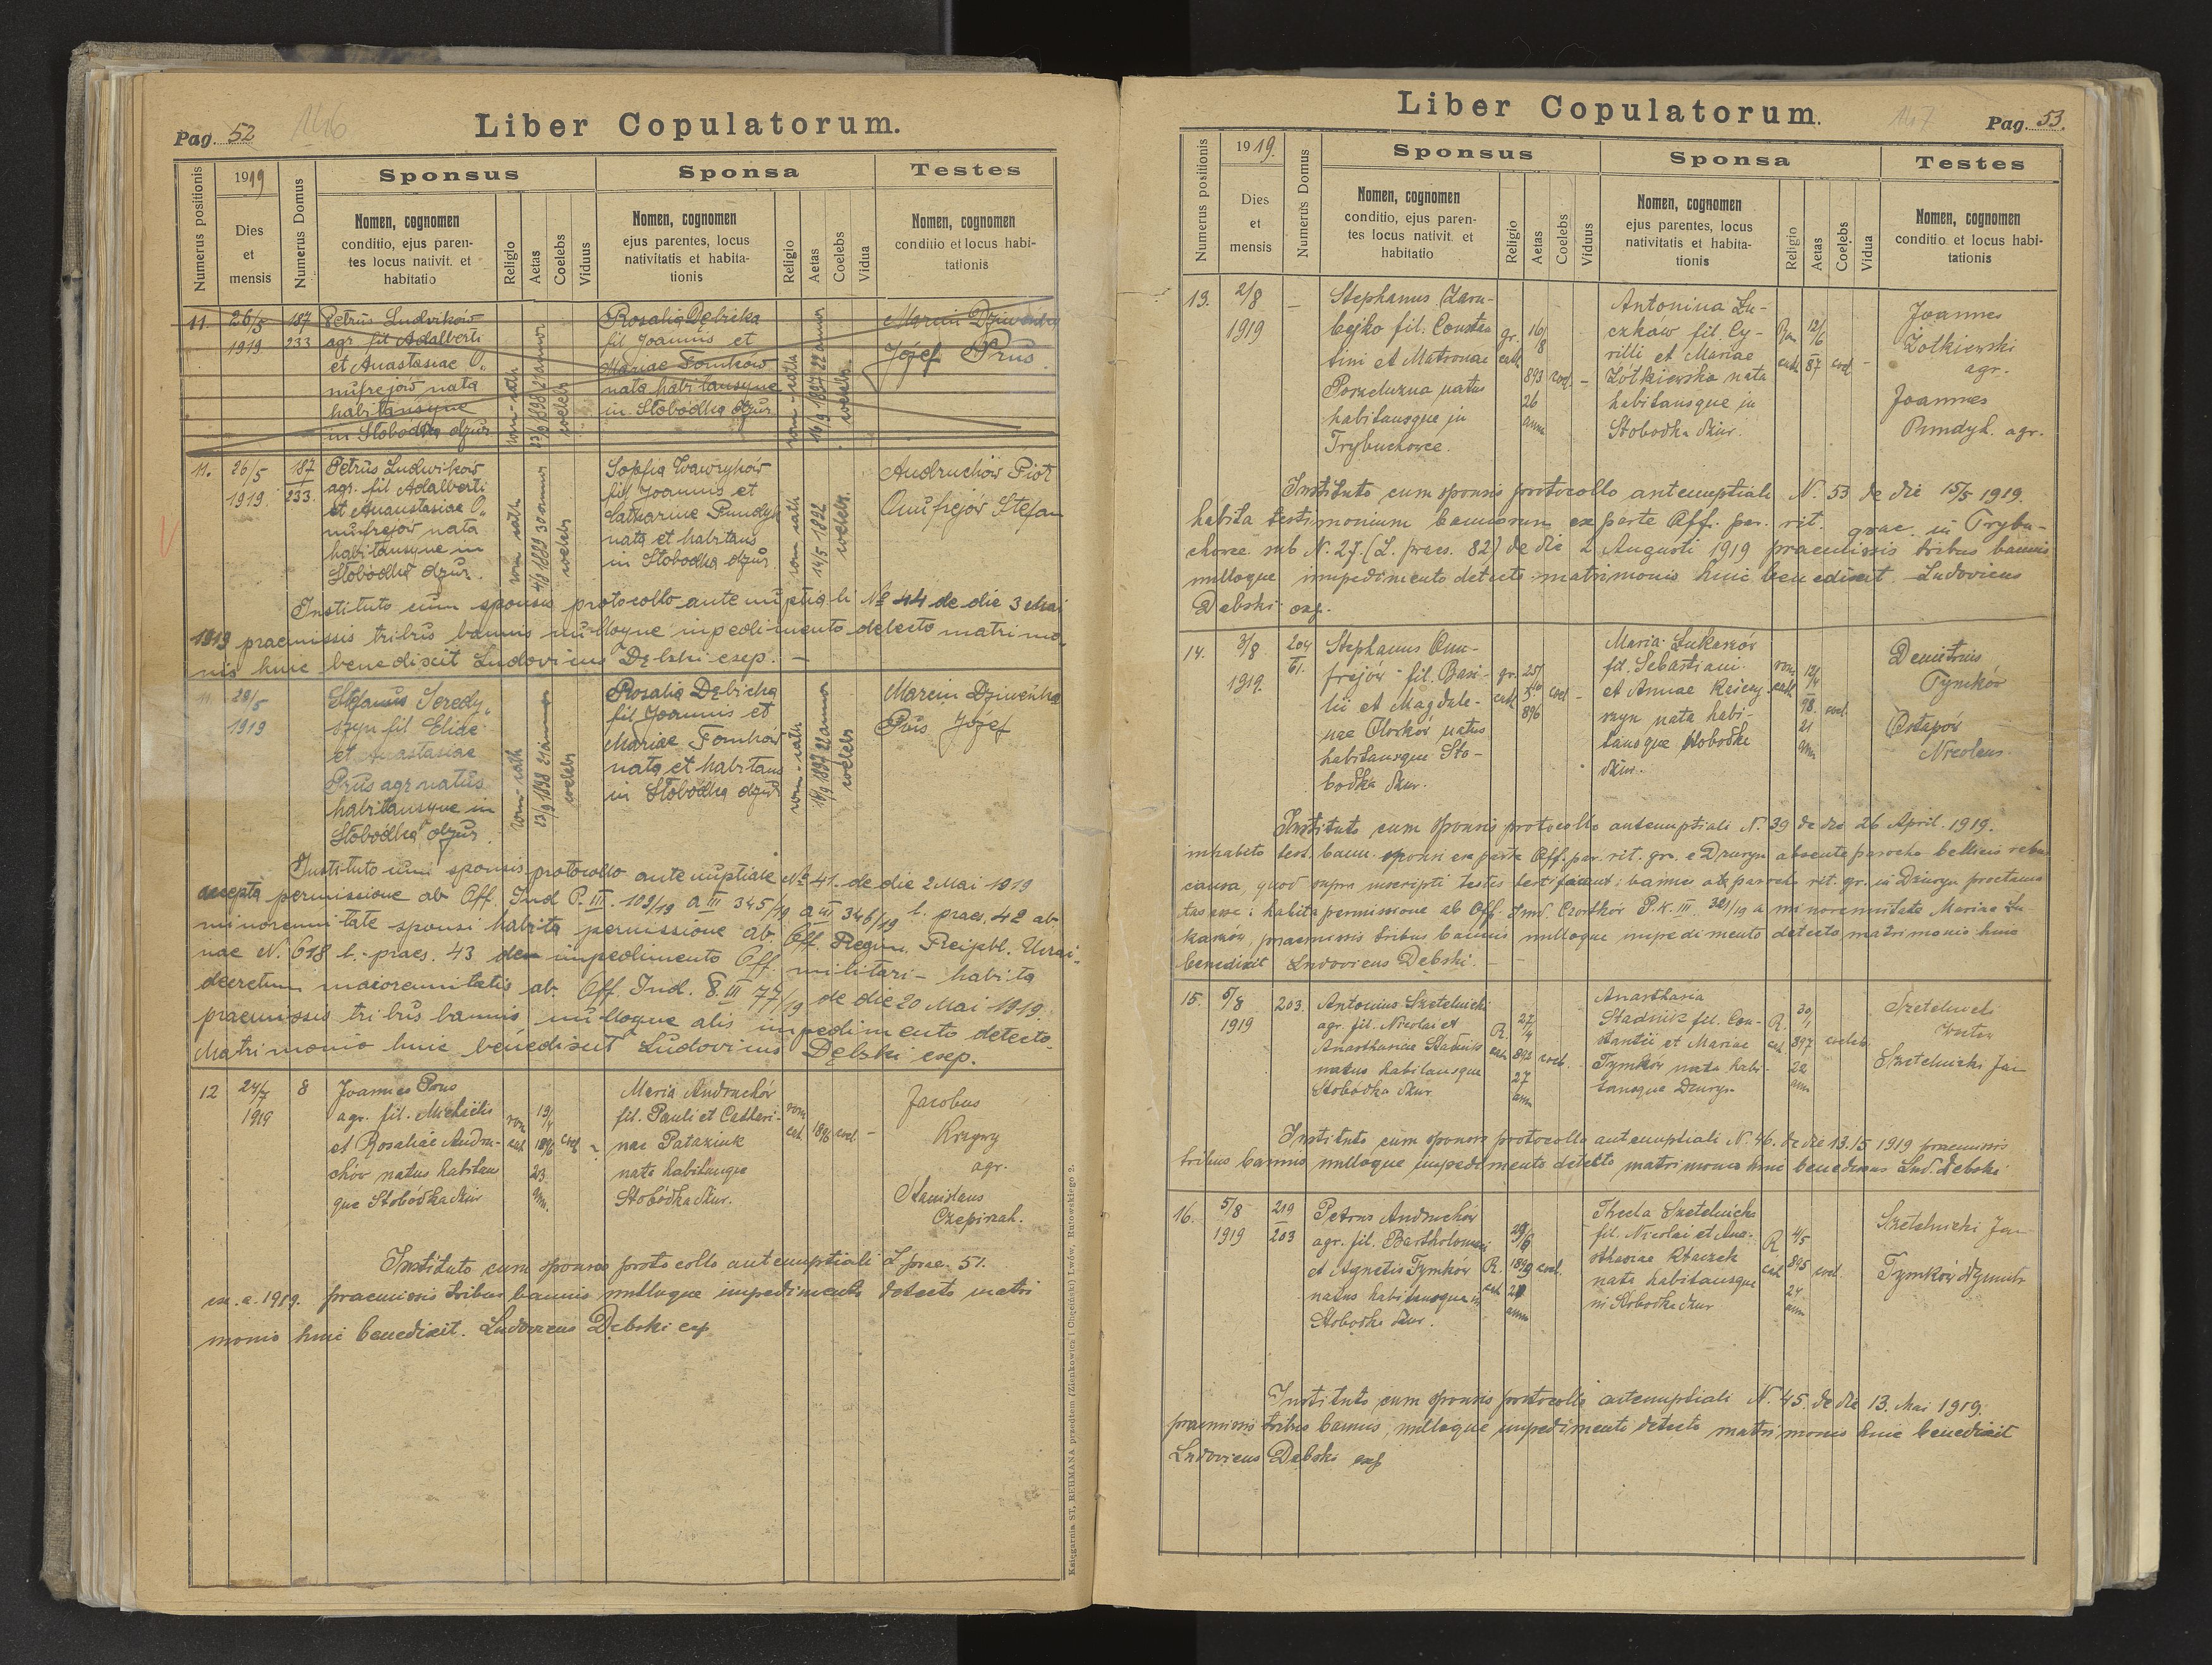 Pag. 52
146
Liber Copulatorum.
Numerus positionis
1919
Dies
et
mensis
Numerus Domus
Sponsus
Nomen, cognomen
conditio, ejus paren-
tes locus nativit. et
habitatio
Religio
Aetas
Coelebs
Viduus
Sponsa
Nomen, cognomen
ejus parentes, locus
nativitatis et habita-
tionis
Religio
Aetas
Coelebs
Vidua
Testes
Nomen, cognomen
conditio et locus habi-
tationis
11.
26/5
1919
187
233
Petrus Ludwików
agr fil Adalberti
et Anastasiae O„
nufrejów nata
habitansque
in Słobódka dżur
rom-cath
23/9 1898 21 annor
coelebs
Rosalia Dębicka
fil Joannis et
Mariae Tomków
nata habitansque
in Słobódka dżur
rom-cath
16/9 1897 22 annor
coelebs
Marcin Dziwenka
Józef Prus
11.
26/5
1919
187
233.
Petrus Ludwików
agr. fil Adalberti
et Anaustasiae O„
nufrejów nata
habitansque in
Słobódka dżur.
rom cath
4/9 1889 30 annor
coelebs
Sopfia Wawryków
fil Joannis et
Catharine Pundyk
nata et habitans
in Słobódka dżur
rom cath
14/5 1822
coelebs.
Andruchów Piotr
Onufrejów Stefan
Instituto cum sponsis protocollo ante nuptiali № 44 de die 3 Mai
1919 praemissis tribus bannis nulloque inpedimento detecto matrimo„
nio huic benedixit Ludovicus Dębski exp. —
11
28/5
1919
Stefanus Seredy„
szyn fil Eliae
et Anastasiae
Prus agr natus
habitansque in
Słobódka dżur.
rom-cath
23/9 1898 21 annor
coelebs
Rosalia Dębicka
fil Joannis et
Mariae Tomków
nata et habitans
in Słobódka dżur
rom-cath
16/9 1897 22 annor
coelebs
Marcin Dziwenka
Prus Józef
Instituto cum sponsis protocollo ante nuptiale № 41. de die 2 Mai 1919
accepta permissione ab Off. Jud P. III. 109/19 a III 345/19 a III 346/19 l. praes. 42 ab
minorennitate sponsi habita permissione ab. Off. Regim. Reipbl. Ucrai„
nae N. 618 l.-praes. 43 de impedimento Off. militari - habita
decretum maiorennitatis ab. Off. Jud. S. III 77/19 de die 20 Mai 1919.
praemissis tribus bannis nulloque alis impedimento detecto
Matrimonio huic benedixit Ludovicus Dębski exp.
12
24/7
1919
8
Joannes Prus
agr. fil. Michaelis
et Rosaliae Andru-
chów natus habitans
que Słobódka dżur
rom
cat
19/4
1896
23
ann.
coel
-
Maria Andruchów
fil. Pauli et Cathari-
nae Pataziuk
nata habitansque
Słobódka dżur.
rom
cat
1896
coel
-
Jacobus
Krzywy
agr.
Stanislaus
Czepirzak.
Instituto cum sponsis protocollo antenuptiali L. prae. 51.
ex. a. 1919. praemissis tribus bannis nulloque impedimento detecto matri
monio huic benedixit. Ludovicus Dębski exp
Księgarnia ST. REHMANA przedtem (Zienkowicz i Chęciński) Lwów, Rutowskiego 2.
Liber Copulatorum.
147
Pag. 53.
Numerus positionis
1919.
Dies
et
mensis
Numerus Domus
Sponsus
Nomen, cognomen
conditio, ejus paren-
tes locus nativit. et
habitatio
Religio
Aetas
Coelebs
Viduus
Sponsa
Nomen, cognomen
ejus parentes, locus
nativitatis et habita-
tionis
Religio
Aetas
Coelebs
Vidua
Testes
Nomen, cognomen
conditio et locus habi-
tationis
13.
2/8
1919
—
Stephanus Zaru-
bejko fil. Constan
tini et Matronae
natus
habitansque in
Trybuchowce.
gr.
cath
16/8
893
26
ann
coel.
-
Antonina Lu-
czków fil. Cy-
rilli et Mariae
Żółkiewska nata
habitansque in
Słobodka dżur.
Rom
cath
12/6
87
coel
-
Joannes
Żołkiewski
agr.
Joannes
Pundyk. agr.
Instituto cum sponsis protocollo antenuptiali N. 53 de die 15/5 1919.
habita testimonium bannorum ex parte Off. par. rit. graec. in Trybu-
chowce sub N. 27. (L. praes. 82) de die 2 Augusti 1919 praemissis tribus bannis
nulloque impedimento detecto matrimonio huic benedixit Ludovicus
Dębski exp.
14.
3/8
1919.
204
61.
Stephanus Onu-
frejów - fil. Basi-
lii et Magdale-
nae natus
habitansque Sło-
bodka dżur.
gr.
cath
25/
896
coel
-
Maria Łukaszów
fil. Sebastiani
et Annae
nata habi-
tansque Słobodka
dżur.
rom
cath
98.
21
ann
coel.
Demetrius
Tymków
Ostapów
Nicolaus.
Instituto cum sponsis protocollo antenuptiali N. 39 de die 26 April. 1919.
inhabito test. bann. sponsi ex parte Off. par. rit. gr. e Dżuryn absente parocho bellicis rebus
causa, quod supra inscripti testes testificant; bannes a parocho rit. gr. in Dżuryn proclama
tas esse; habita permissione ab Off. Jud. Czortków P. K. III. 321/19 a minorennitate Mariae Łu
kaszów, praemissis tribus bannis nulloque impedimento detecto matrimonio huic
benedixit Ludovicus Dębski. —
15.
5/8
1919
203.
Antonius Szetelnicki
agr. fil. Nicolai et
Anasthasiae Stadnik
natus habitansque
Słobodka dżur
R.
cath
27/4
892
27
ann
coel.
Anasthasia
Stadnik fil. Con-
stantii et Mariae
Tymków nata habi-
tansque Dżuryn
R.
cat
30/1
897
22
ann
coeleb.
Szetelnicki
Szetelnicki Jan
Instituto cum sponsis protocollo antenuptiali N. 46. de die 13.|5 1919 praemissis
tribus bannis nulloque impedimento detecto matrimonio huic benedixit Lud. Dębski
16.
5/8
1919
219
203
Petrus Andruchów
agr. fil. Bartholomaei
et Agnetis Tymków
natus habitansque in
Słobodka dżur.
R.
cat
29/6
1899
ann
coel.
Thecla Szetelnicka
fil. Nicolai et Ana-
sthasiae
nata habitansque
in Słobodka dżur
R
cat
4/5
895
24
ann
coel.
Szetelnicki Jan
Tymków
Instituto cum sponsis protocollo antenuptiali N. 45. de die 13. Mai 1919.
praemissis tribus bannis, nulloque impedimento detecto matrimonio huic benedixit
Ludovicus Dębski exp